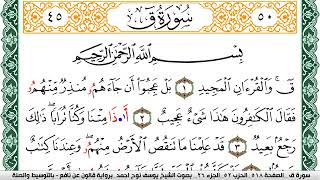 ٤٥ سُورَةُ قٓ ٥٠
بِسْمِ اللَّهِ الرَّحْمَٰنِ الرَّحِيمِ
قٓ وَالْقُرْءَانِ الْمَجِيدِ ١ بَلْ عَجِبُوا أَن جَاءَهُم مُّنذِرٌ مِّنْهُمُۥ
فَقَالَ الْكَٰفِرُونَ هَٰذَا شَيْءٌ عَجِيبٌ ٢ أَ•ذَا مِتْنَا وَكُنَّا تُرَابًا ذَٰلِكَ
رَجْعٌ بَعِيدٌ ٣ قَدْ عَلِمْنَا مَا تَنقُصُ الْأَرْضُ مِنْهُمُۥ وَعِندَنَا كِتَٰبٌ
سورة ق - الصفحة ٥١٨ الحزب ٥٢ الجزء ٢٦ - بصوت الشيخ يوسف نوح أحمد برواية قالون عن نافع - بالتوسيط والصلة